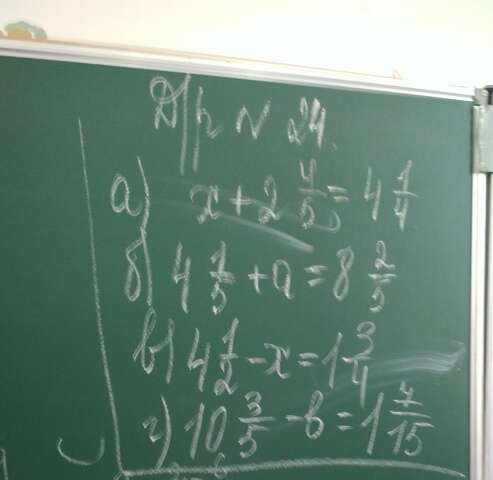 Д/р № 24.
а) x + 2 4/5 = 4 1/4
б) 4 1/5 + a = 8 2/5
в) 4 1/2 - x = 1 3/4
г) 10 3/5 - b = 1 7/15